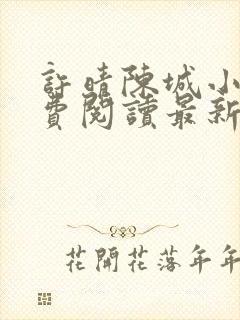 許晴陳城小
費閱讀最新
花開花落年年